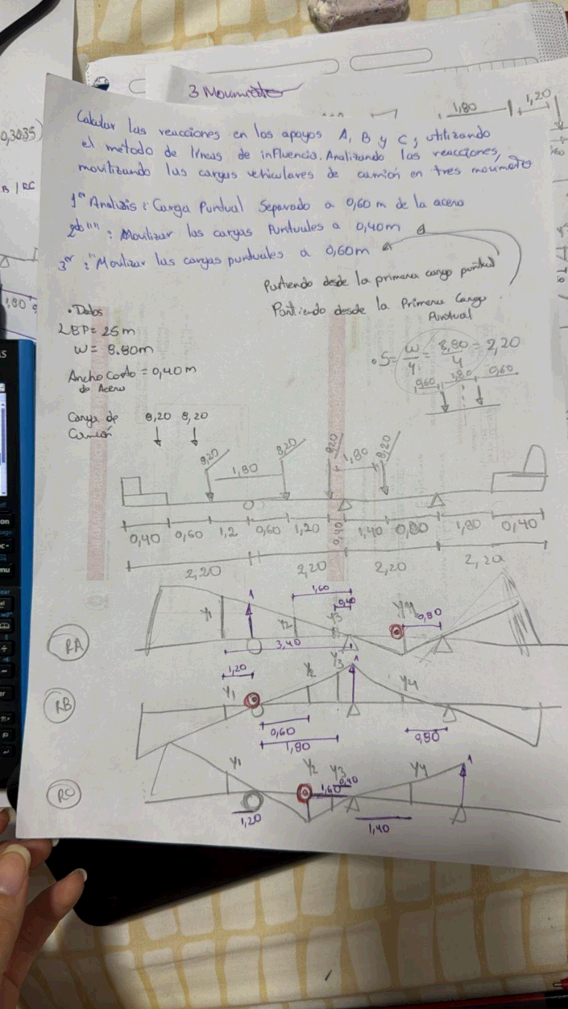 3 Movimiento
1,80
1,20
0,3035)
Calcular las reacciones en los apoyos A, B y C, utilizando
el metodo de lineas de influencia. Analizando las reacciones,
movilizando las cargas vehiculares de camión en tres movimientos
1er Analisis: Carga Puntual Separado a 0,60 m de la acera
2do "" : Movilizar las cargas Puntuales a 0,40m
3er : "Movilizar las cargas puntuales a 0,60m
Partiendo desde la primera carga puntual
Partiendo desde la Primera Carga
Puntual
• Datos
LBP= 25m
W= 8.80m
Ancho Costo = 0,40m
de Acera
• S= W/4 = 8,80/4 = 2,20
0,60 1,80 0,60
Carga de 8,20 8,20
Camión
8,20 1,80 8,20 8,20 1,80 8,20
0,40 0,60 1,2 0,60 1,20 0,40 1,40 0,80 1,80 0,40
2,20 2,20 2,20 2,20
RA
Y1 1 Y2 1,60 Y3 0,40 Y4 0,80
3,40
RB
1,20 Y1 Y2 Y3 1 Y4
0,60 0,80
1,80
RC
Y1 Y2 Y3 Y4 1
1,60 0,40
1,20 1,40